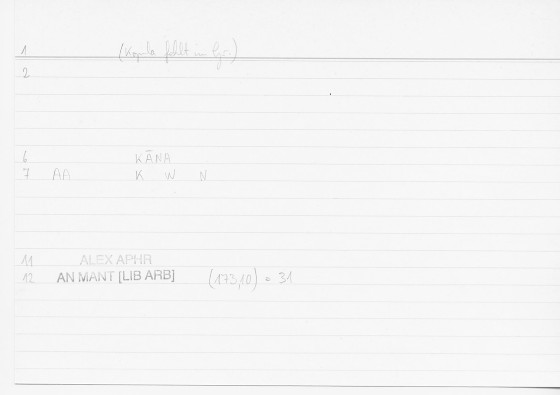 1 (Kopula fehlt im Gr.)
2
6 KĀNA
7 AA K W N
11 ALEX APHR
12 AN MANT [LIB ARB] (173,10) = 31